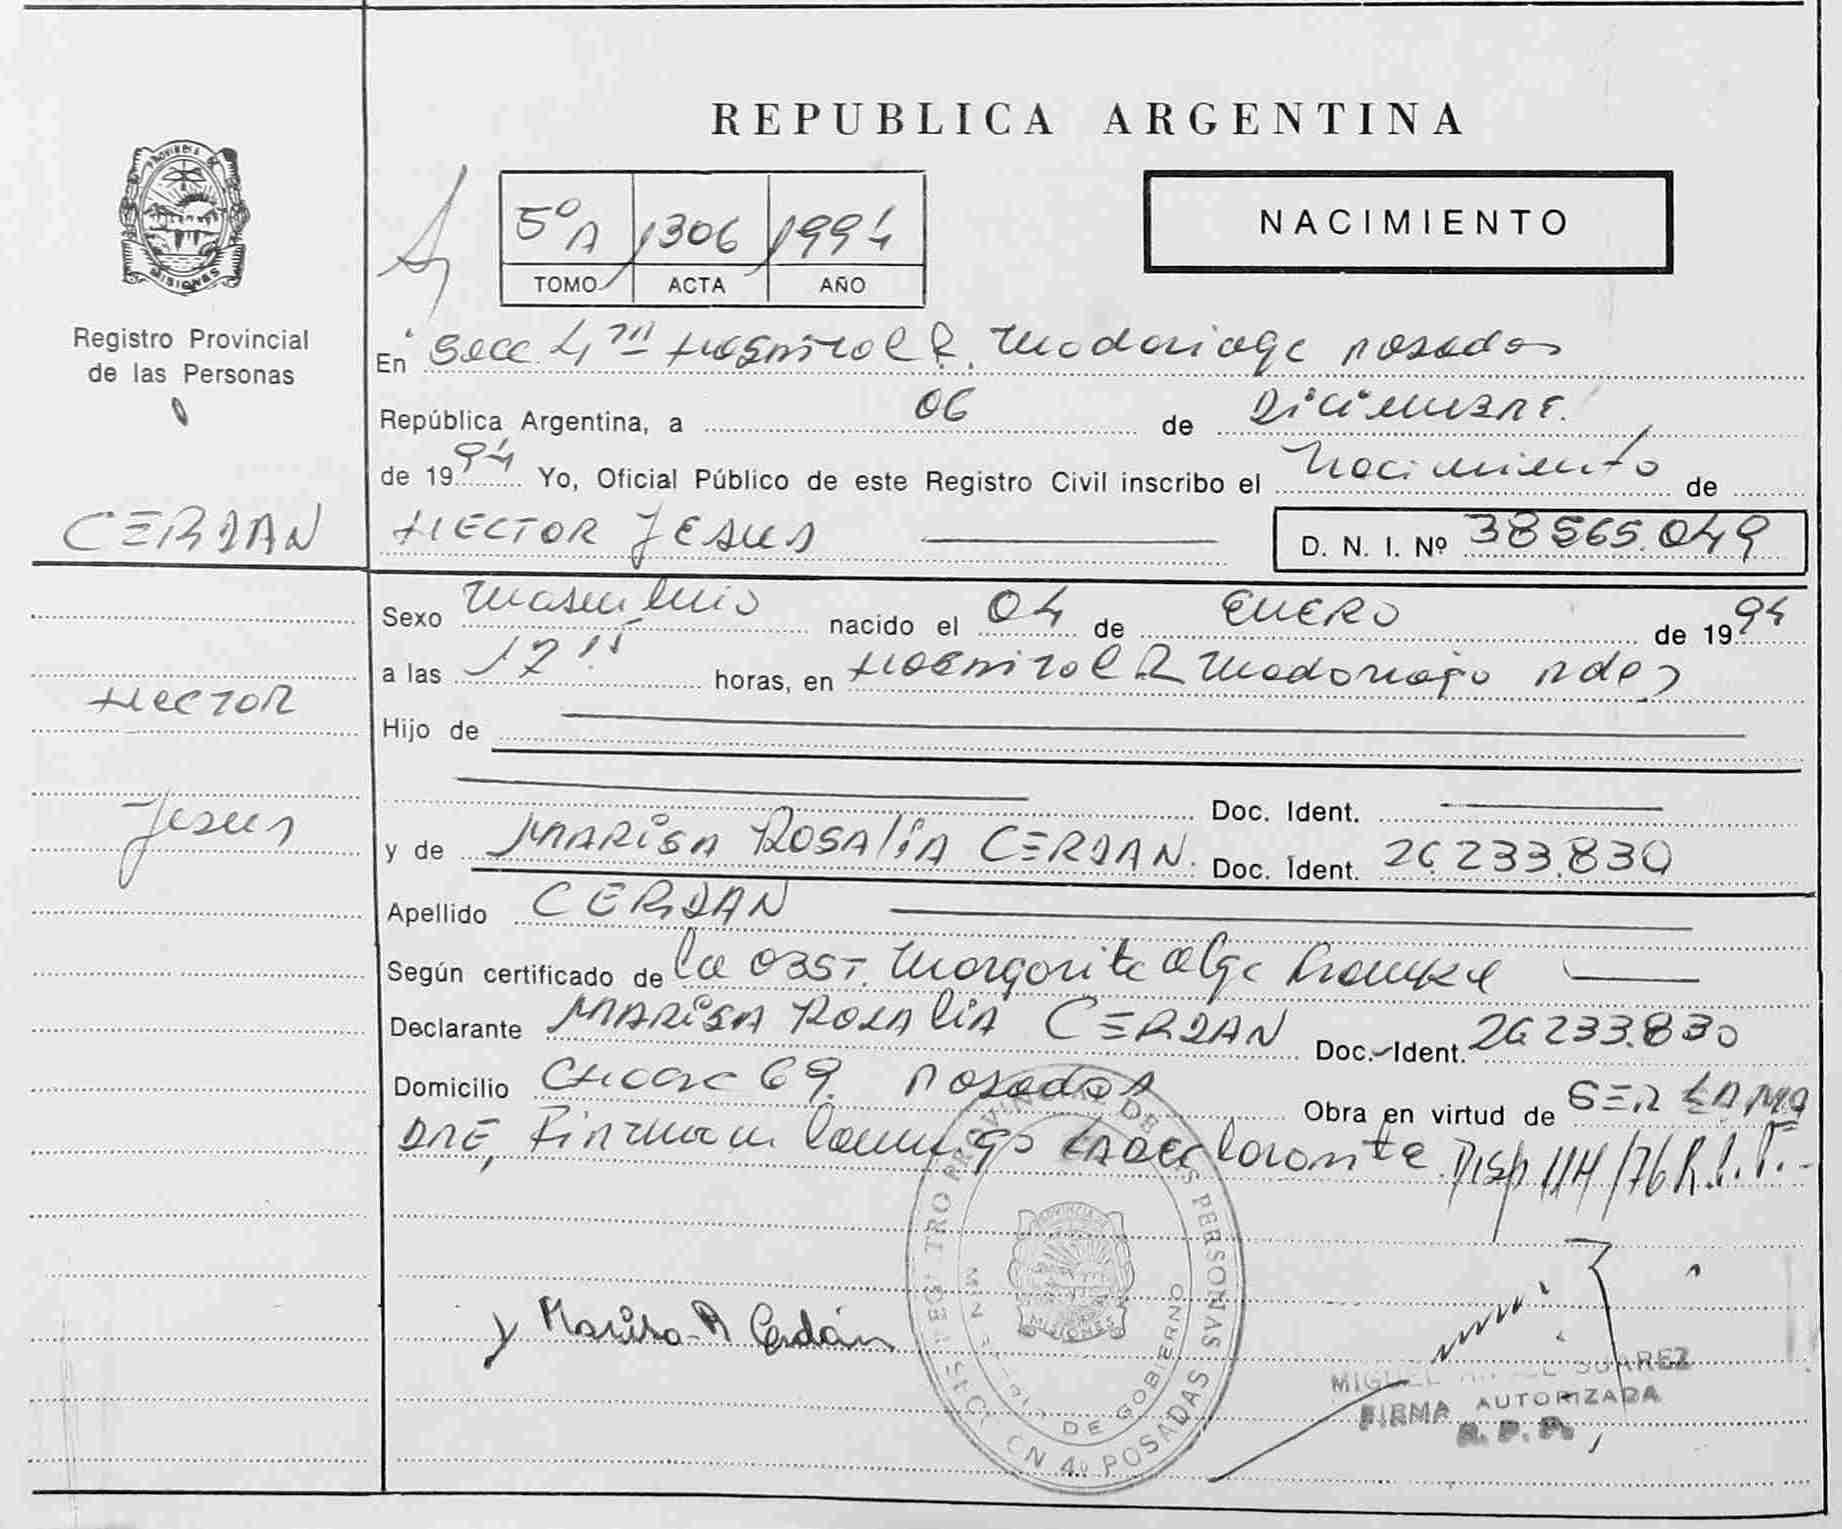 REPUBLICA ARGENTINA
PROVINCIA DE
MISIONES
Registro Provincial
de las Personas
5º A 1306 1994
TOMO ACTA AÑO
NACIMIENTO
En Secc. 4ta Hospital R. Madariaga Posadas
República Argentina, a 06 de Diciembre.
de 1994 Yo, Oficial Público de este Registro Civil inscribo el Nacimiento de
CERDAN
HECTOR JESUS D. N. I. Nº 38565.049
Sexo Masculino nacido el 04 de ENERO de 1994
a las 17 horas, en Hospital R Madariaga Pdas
Hector
Hijo de
Doc. Ident.
Jesus
y de MARISA ROSALIA CERDAN. Doc. Ident. 26.233.830
Apellido CERDAN
Según certificado de la OBST. Margarita Olga
Declarante MARISA ROSALIA CERDAN Doc. Ident. 26 233.830
Domicilio 69. Posadas Obra en virtud de SER LA MA
DRE, Firman conmigo LA declarante. Disp 114/76 R.P.P.-
Marisa R Cerdán
REGISTRO PROVINCIAL DE LAS PERSONAS
PROVINCIA DE
MISIONES
DE GOBIERNO
SECCION 4º POSADAS
MIGUEL ANGEL SUAREZ
FIRMA AUTORIZADA
R. P. P.